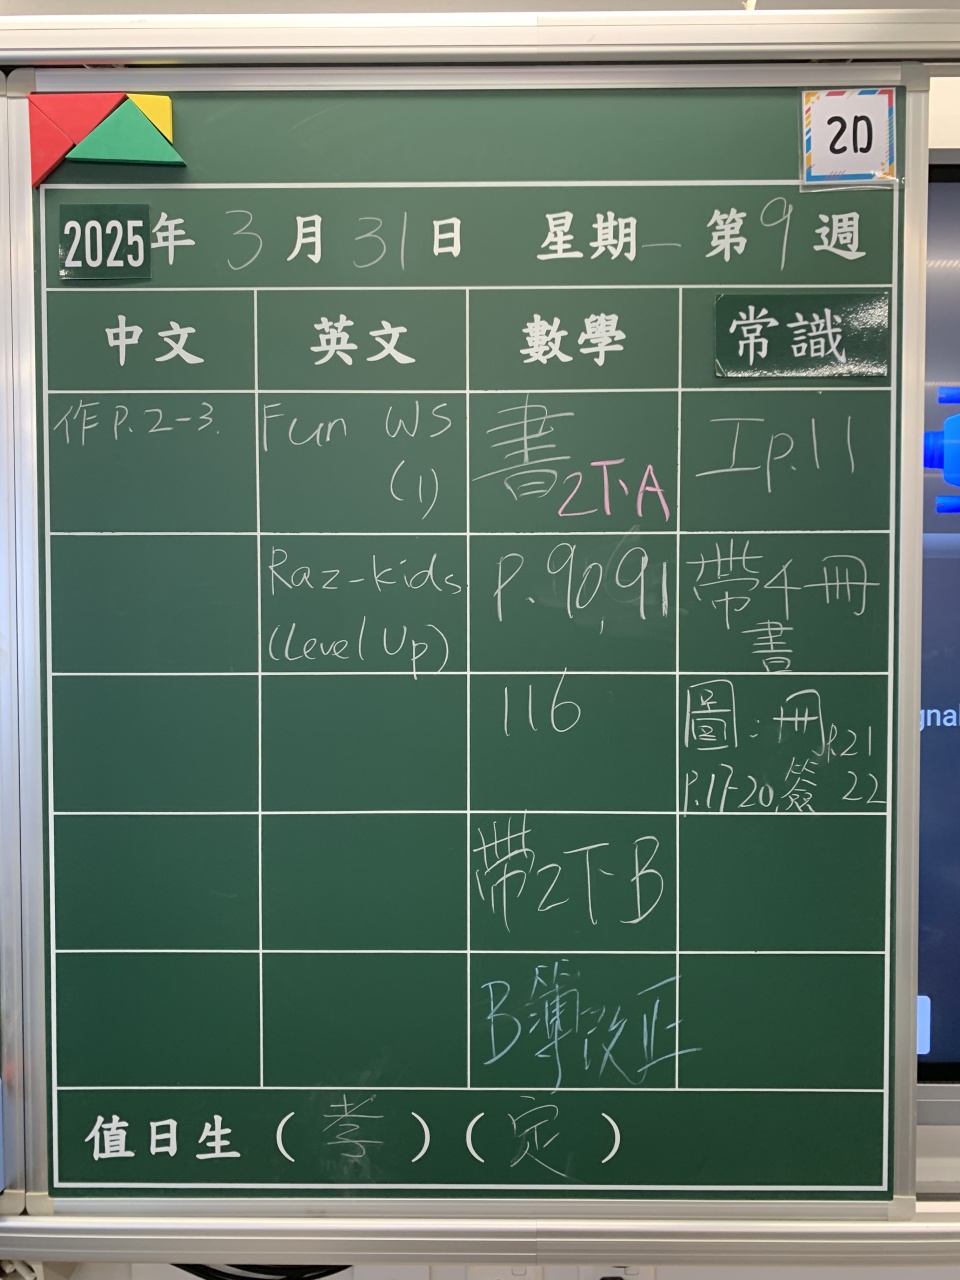 2D
2025年 3月31日 星期一 第9週
中文 英文 數學 常識
作P.2-3. Fun WS 書 Ip.11
(1) 2下A
Raz-kids P.90,91 帶4冊
(Level Up) 書
116 圖:冊
P.21
P.17-20,簽 22
帶2下B
B簿改正
值日生(孝)(定)